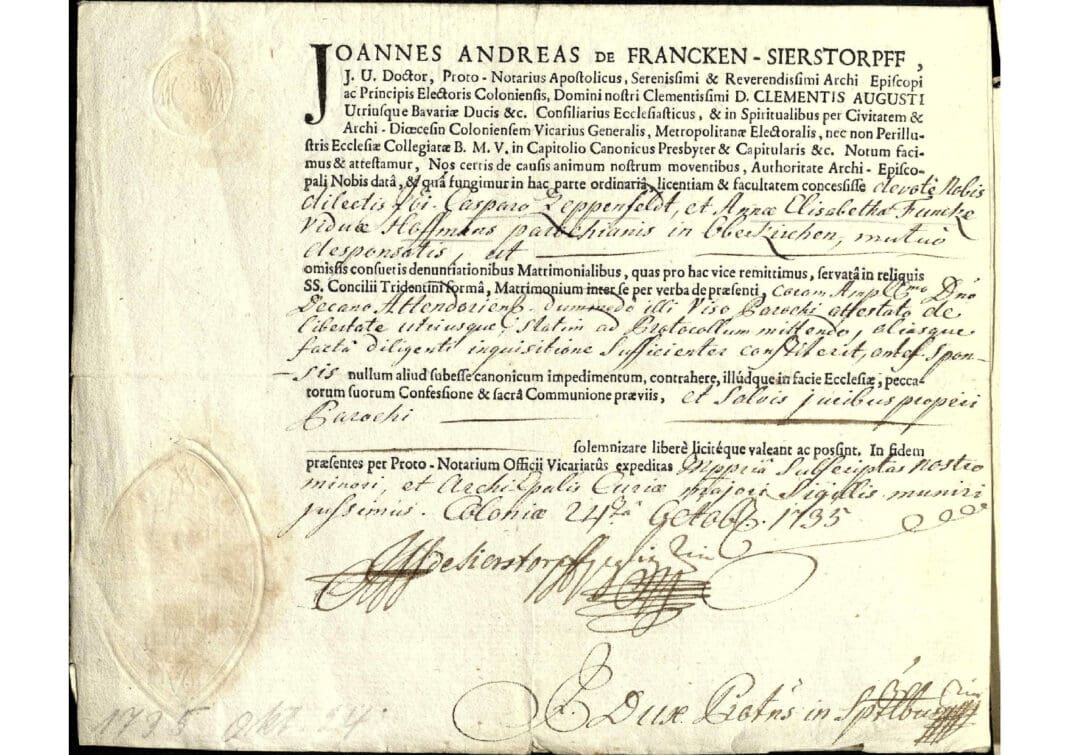 JOANNES ANDREAS DE FRANCKEN - SIERSTORPFF,
J. U. Doctor, Proto - Notarius Apostolicus, Serenissimi & Reverendissimi Archi Episcopi
ac Principis Electoris Coloniensis, Domini nostri Clementissimi D. CLEMENTIS AUGUSTI
Utriusque Bavariæ Ducis &c. Consiliarius Ecclesiasticus, & in Spiritualibus per Civitatem &
Archi - Diœcesin Coloniensem Vicarius Generalis, Metropolitanæ Electoralis, nec non Perillu-
stris Ecclesiæ Collegiatæ B. M. V. in Capitolio Canonicus Presbyter & Capitularis &c. Notum faci-
mus & attestamur, Nos certis de causis animum nostrum moventibus, Authoritate Archi - Episco-
pali Nobis datâ, & quâ fungimur in hac parte ordinariâ, licentiam & facultatem concessisse devotè Nobis
dilectis Casparo Zeppenfeldt, et Annæ Elisabethæ Funcke
Viduæ Hoffmans parochianis in Oberkirchen, mutuò
desponsatis, ut
omissis consuetis denuntiationibus Matrimonialibus, quas pro hac vice remittimus, servatâ in reliquis
SS. Concilii Tridentini formâ, Matrimonium inter se per verba de præsenti, coram Dno
Decano Attendoriens. dummodò illi Viso Parochi attestato de
libertate utriusque, statim ad Protocollum mittendo, aliàsque
factâ diligenti inquisitione sufficienter constiterit, antef. Spon-
sis nullum aliud subesse canonicum impedimentum, contrahere, illúdque in facie Ecclesiæ, pecca-
torum suorum Confessione & sacrâ Communione præviis, et Salvis juribus proprii
Parochi
solemnizare liberè licitéque valeant ac possint. In fidem
præsentes per Proto - Notarium Officii Vicariatûs expeditas subscriptas nostro
minori, et Archi Eplis Curiæ majori Sigillis muniri
jussimus. Coloniæ 24ta Octob. 1735
de Sierstorpff
Dux Protns in
1735 Okt. 24.